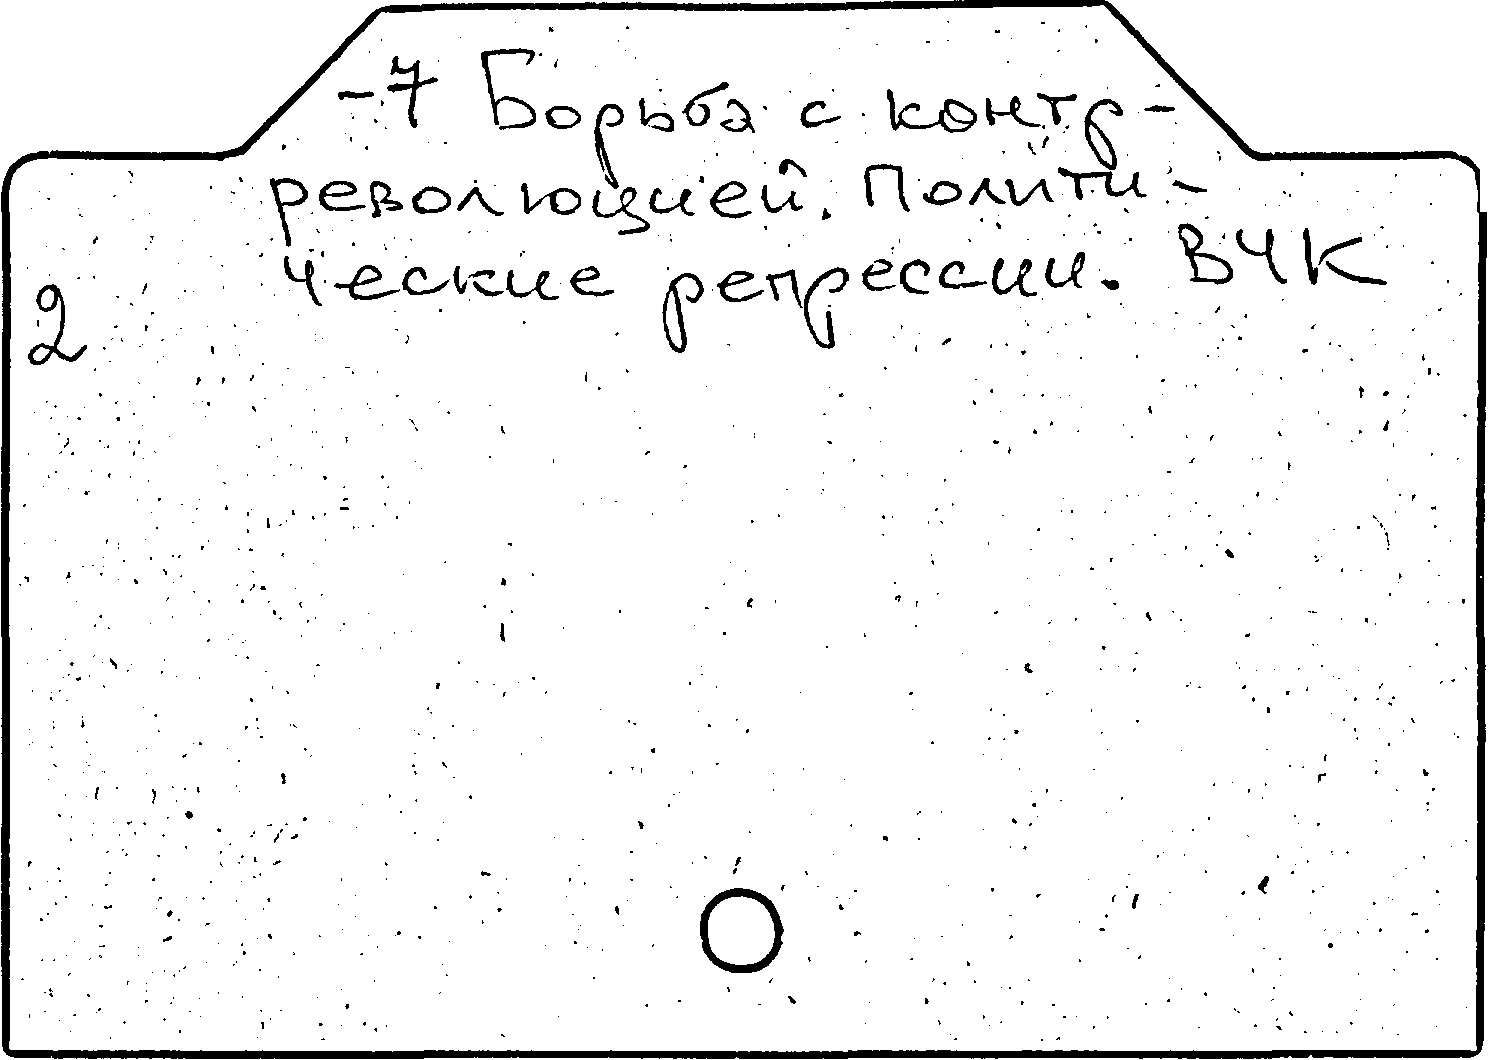 -7 Борьба с контр-
революцией. Полити-
ческие репрессии. ВЧК
2